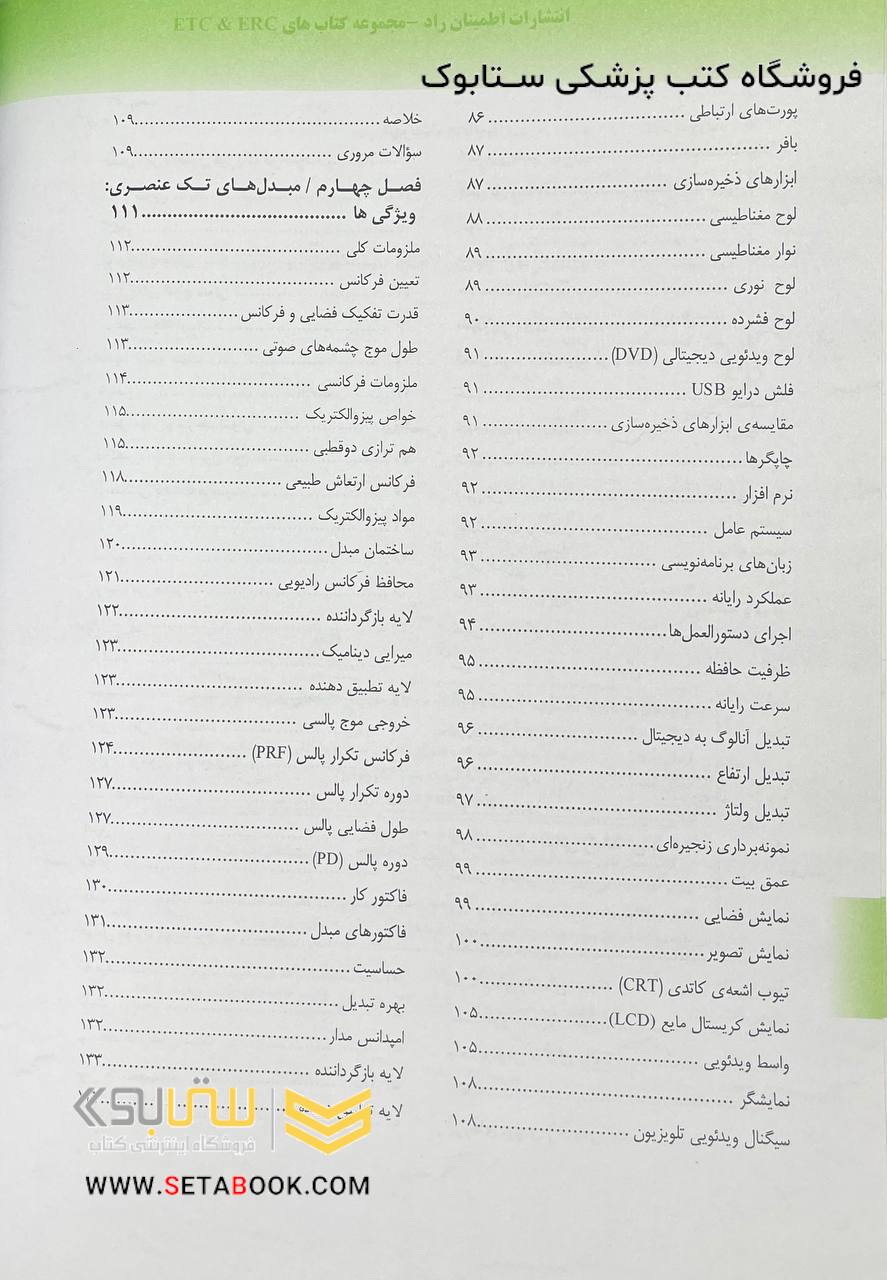 انتشارات اطمینان راد -مجموعه کتاب های ETC & ERC
فروشگاه کتب پزشکی ستابوک
پورت‌های ارتباطی ................................... ۸۶
بافر ................................................... ۸۷
ابزارهای ذخیره‌سازی ................................ ۸۷
لوح مغناطیسی ....................................... ۸۸
نوار مغناطیسی ....................................... ۸۹
لوح نوری ........................................... ۸۹
لوح فشرده ........................................... ۹۰
لوح ویدئویی دیجیتالی (DVD) ...................... ۹۱
فلش درایو USB .................................... ۹۱
مقایسه‌ی ابزارهای ذخیره‌سازی ...................... ۹۱
چاپگرها .............................................. ۹۲
نرم افزار ............................................. ۹۲
سیستم عامل ........................................ ۹۲
زبان‌های برنامه‌نویسی .............................. ۹۳
عملکرد رایانه ........................................ ۹۳
اجرای دستورالعمل‌ها ................................. ۹۴
ظرفیت حافظه ....................................... ۹۵
سرعت رایانه ......................................... ۹۵
تبدیل آنالوگ به دیجیتال ............................ ۹۶
تبدیل ارتفاع ......................................... ۹۶
تبدیل ولتاژ .......................................... ۹۷
نمونه‌برداری زنجیره‌ای ............................... ۹۸
عمق بیت ............................................ ۹۹
نمایش فضایی ....................................... ۹۹
نمایش تصویر ........................................ ۱۰۰
تیوب اشعه‌ی کاتدی (CRT) ........................ ۱۰۰
نمایش کریستال مایع (LCD) ........................ ۱۰۵
واسط ویدئویی ....................................... ۱۰۵
نمایشگر ............................................. ۱۰۸
سیگنال ویدئویی تلویزیون ........................... ۱۰۸
خلاصه ............................................... ۱۰۹
سؤالات مروری ...................................... ۱۰۹
فصل چهارم / مبدل‌های تک عنصری:
ویژگی ها ........................................... ۱۱۱
ملزومات کلی ........................................ ۱۱۲
تعیین فرکانس ....................................... ۱۱۲
قدرت تفکیک فضایی و فرکانس ..................... ۱۱۳
طول موج چشمه‌های صوتی .......................... ۱۱۳
ملزومات فرکانسی ................................... ۱۱۴
خواص پیزوالکتریک ................................. ۱۱۵
هم ترازی دوقطبی ................................... ۱۱۵
فرکانس ارتعاش طبیعی .............................. ۱۱۸
مواد پیزوالکتریک .................................... ۱۱۹
ساختمان مبدل ...................................... ۱۲۰
محافظ فرکانس رادیویی ............................. ۱۲۱
لایه بازگرداننده ...................................... ۱۲۲
میرایی دینامیک ...................................... ۱۲۳
لایه تطبیق دهنده ................................... ۱۲۳
خروجی موج پالسی .................................. ۱۲۳
فرکانس تکرار پالس (PRF) ......................... ۱۲۴
دوره تکرار پالس .................................... ۱۲۷
طول فضایی پالس ................................... ۱۲۷
دوره پالس (PD) ..................................... ۱۲۹
فاکتور کار ............................................ ۱۳۰
فاکتورهای مبدل ..................................... ۱۳۱
حساسیت ............................................ ۱۳۲
بهره تبدیل ........................................... ۱۳۲
امپدانس مدار ........................................ ۱۳۲
لایه بازگرداننده ...................................... ۱۳۳
لایه
ستابوک
فروشگاه اینترنتی کتاب
WWW.SETABOOK.COM